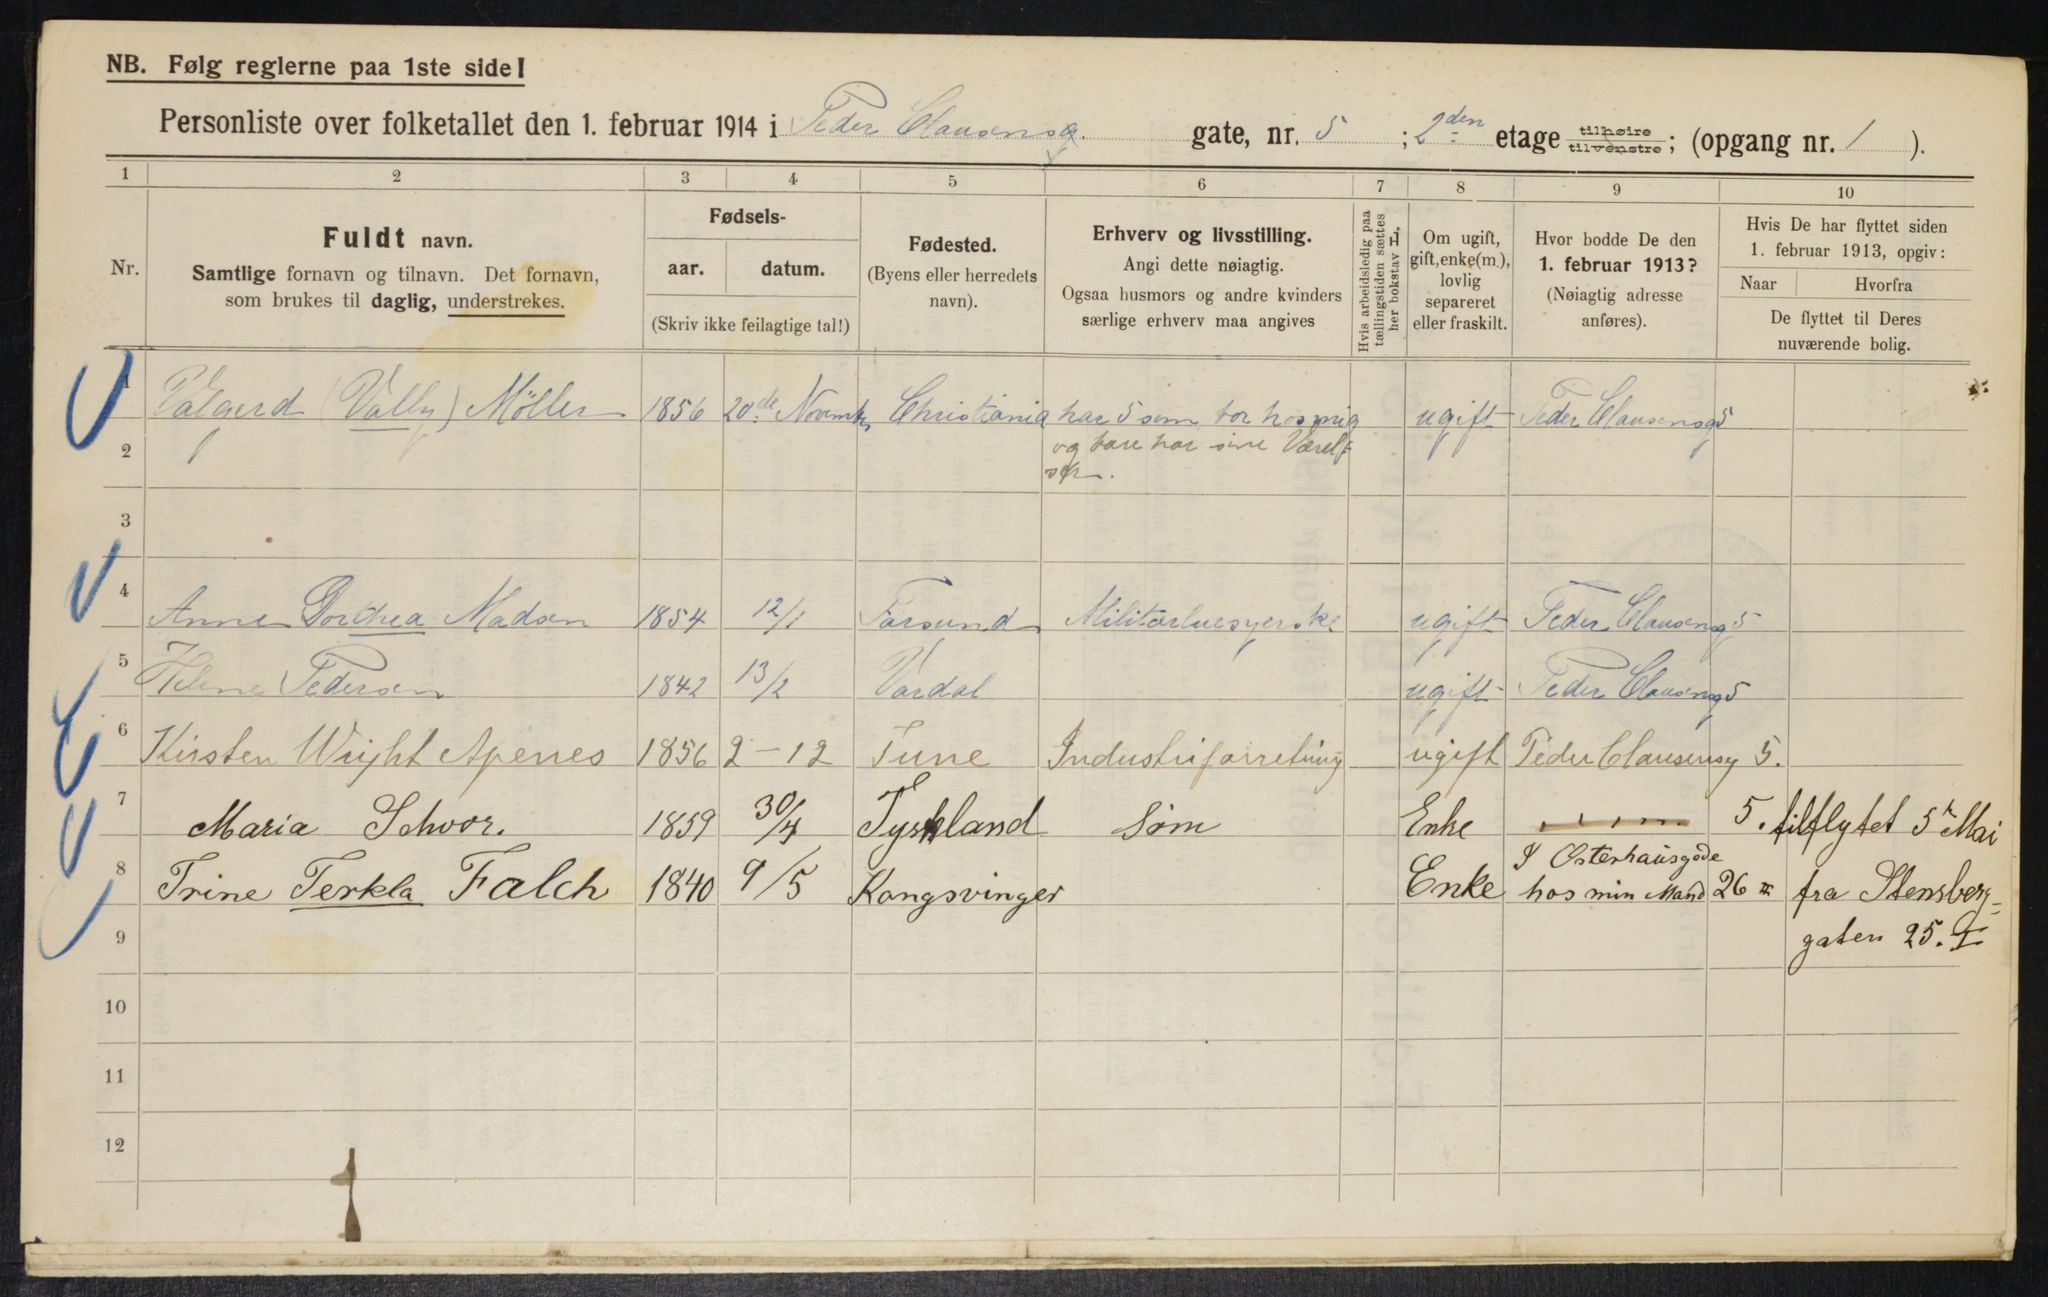 NB. Følg reglerne paa 1ste side!
Personliste over folketallet den 1. februar 1914 i Peder Clausensg. gate, nr. 5 ; 2den etage tilhøire tilvenstre ; (opgang nr. 1 ).
1 2 3 4 5 6 7 8 9 10
Nr.
Fuldt navn.
Samtlige fornavn og tilnavn. Det fornavn,
som brukes til daglig, understrekes.
Fødsels-
aar. datum.
(Skriv ikke feilagtige tal!)
Fødested.
(Byens eller herredets
navn).
Erhverv og livsstilling.
Angi dette nøiagtig.
Ogsaa husmors og andre kvinders
særlige erhverv maa angives
Hvis arbeidsledig paa
tællingstiden sættes
her bokstav L.
Om ugift,
gift, enke(m.),
lovlig
separeret
eller fraskilt.
Hvor bodde De den
1. februar 1913?
(Nøiagtig adresse
anføres).
Hvis De har flyttet siden
1. februar 1913, opgiv:
Naar Hvorfra
De flyttet til Deres
nuværende bolig.
1 Valgerd (Vally) Möller 1856 20de Novmb. Christiania har 5 som bor hos mig ugift Peder Clausensg 5
og bare har sine Værel-
ser.
2
3
4 Anne Dorthea Madsen 1854 12/1 Farsund Militærluesyerske ugift Peder Clausensg 5
5 Helene Pedersen 1842 13/2 Vardal ugift Peder Clausensg 5
6 Kirsten Wright Apenes 1856 2-12 Tune Industriforretning ugift Peder Clausensg 5.
7 Maria Schvor. 1859 30/4 Tyskland Søm Enke 5. tilflytet 5te Mai
8 Trine Terkla Falch 1840 9/5 Kongsvinger Enke I Osterhausgade
hos min Mand 26 III fra Stensberg-
gaten 25. I
9
10
11
12